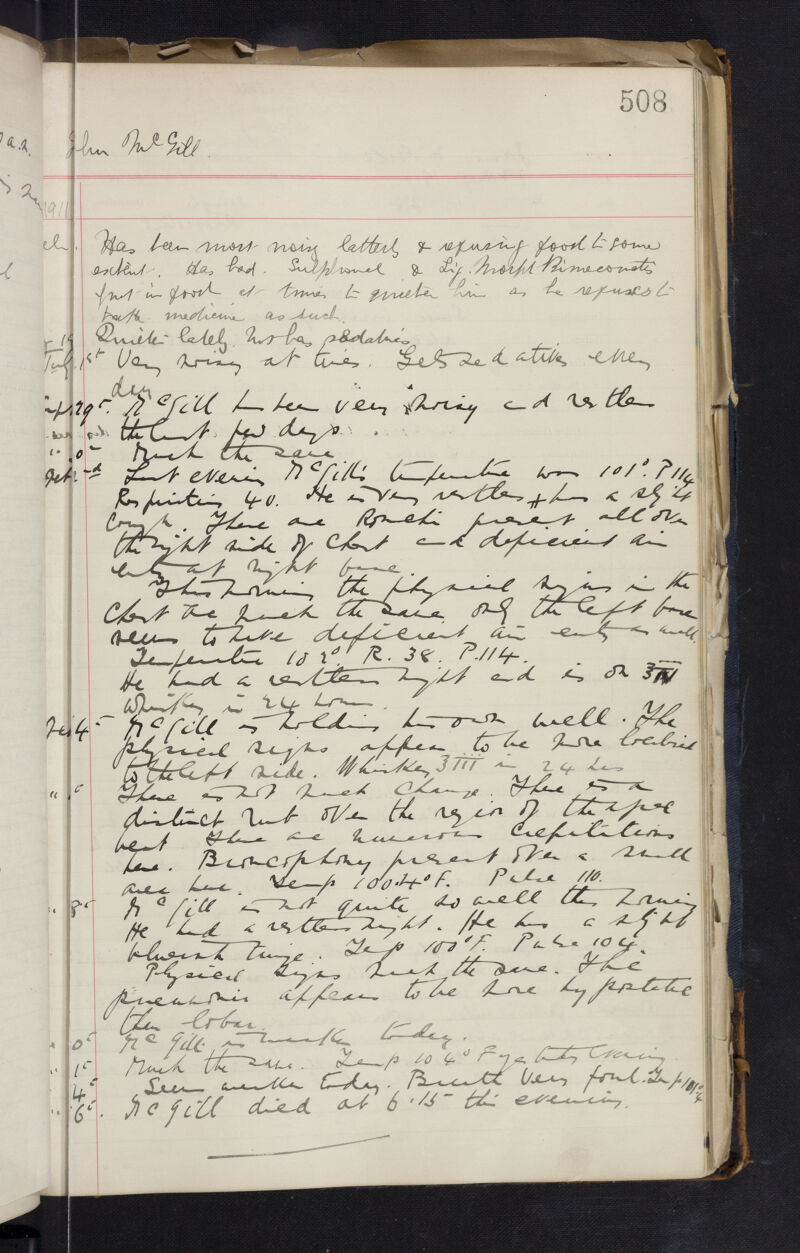 508
John McGill.
1911
Has been most noisy latterly & refusing food to some
extent. Has had. Sulphonal & Liq. Morph Bimeconatis
put in food at times to quieten him as he refuses to
take medicine as such.
Quieter lately. Not has sedatives
July 1st Very noisy at times. Gets sedatives every
day
29th. McGill has been very noisy and restless
the last few days.
" Much the same
Oct 2nd Last evening McGill's temperature was 101°. P 114
Respirations 40. He is very restless & has a slight
cough. There are Ronchi present all over
the right side of chest and deficient air
entry at right base.
This morning the physical signs in the
chest are much the same only the left base
seems to have deficient air entry as well.
Temperature 102° R. 38. P. 114.
He had a restless night and is on ℥III
Whiskey in 24 hours.
4th McGill is holding his own well. The
physical signs appear to be more localised
to the left side. Whiskey ℥III in 24 hrs
" There is not much change. There is a
distinct rub over the region of the apex
beat There are numerous crepitations
here. Broncophony present over a small
area here. Temp 100.4°F. Pulse 110.
" 8th McGill is not quite so well this morning
He had a restless night. He has a slight
blueish tinge. Temp 100°F. Pulse 104.
Physical signs much the same. The
pneumonia appears to be more hypostatic
than lobar.
McGill is weaker today.
Much the same. Temp 104°F yesterday evening
Seems weaker today. Breath very foul. Temp 101
McGill died at 6.15 this evening.